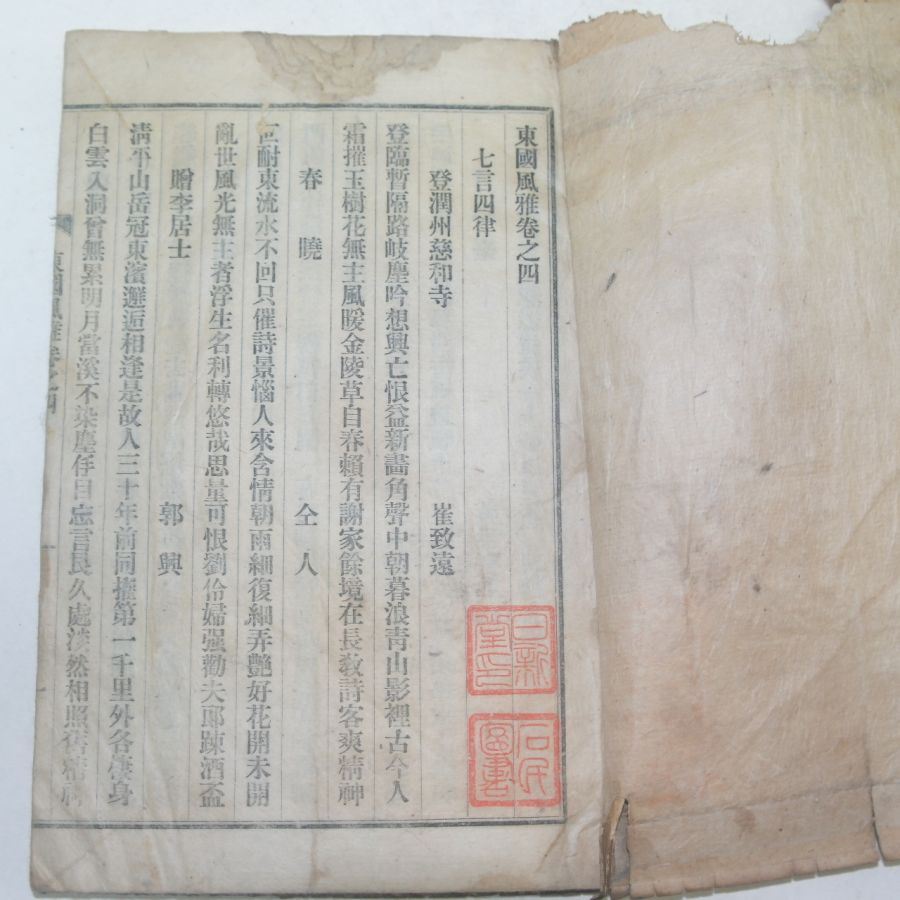 東國風雅卷之四
七言四律
登潤州慈和寺 崔致遠
登臨暫隔路岐塵吟想興亡恨益新畵角聲中朝暮浪靑山影裡古今人
霜摧玉樹花無主風暖金陵草自春賴有謝家餘境在長敎詩客爽精神
春曉 仝人
叵耐東流水不回只催詩景惱人來含情朝雨細復細弄艶好花開未開
亂世風光無主者浮生名利轉悠哉思量可恨劉伶婦强勸夫郞踈酒盃
贈李居士 郭興
淸平山岳冠東濱邂逅相逢是故人三十年前同擢第一千里外各棲身
白雲入洞曾無累明月當溪不染塵 目 忘言良久處淡然相照舊精神
東國風雅卷之四
日新堂印
石民圖書